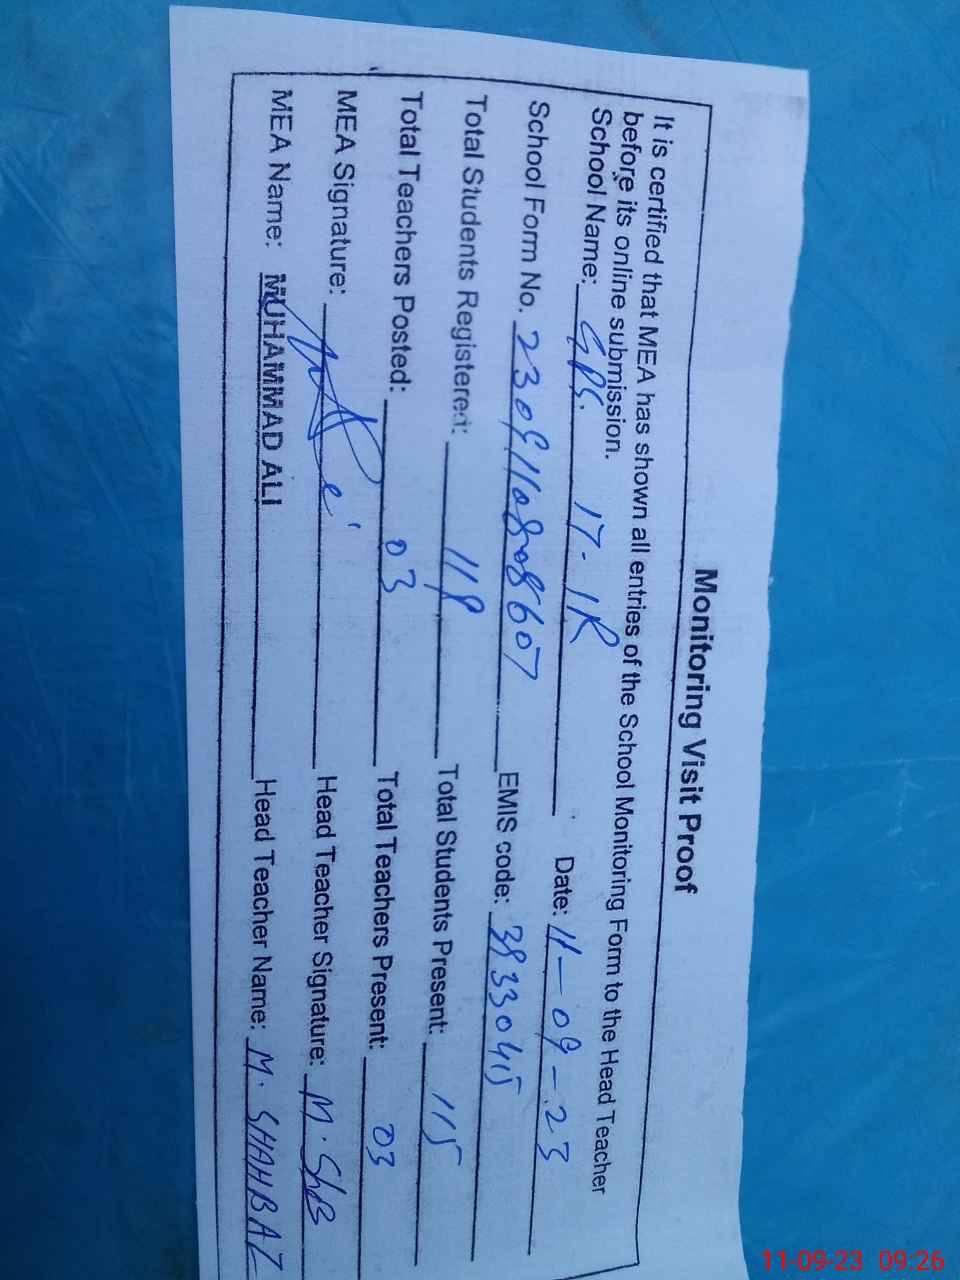 Monitoring Visit Proof
It is certified that MEA has shown all entries of the School Monitoring Form to the Head Teacher
before its online submission.
School Name: GPS. 17-1R Date: 11-09-23
School Form No. 2309110808607 EMIS code: 38330415
Total Students Registered: 118 Total Students Present: 115
Total Teachers Posted: 03 Total Teachers Present: 03
MEA Signature: Head Teacher Signature: M. ShB
MEA Name: MUHAMMAD ALI Head Teacher Name: M. SHAHBAZ
11-09-23 09:26